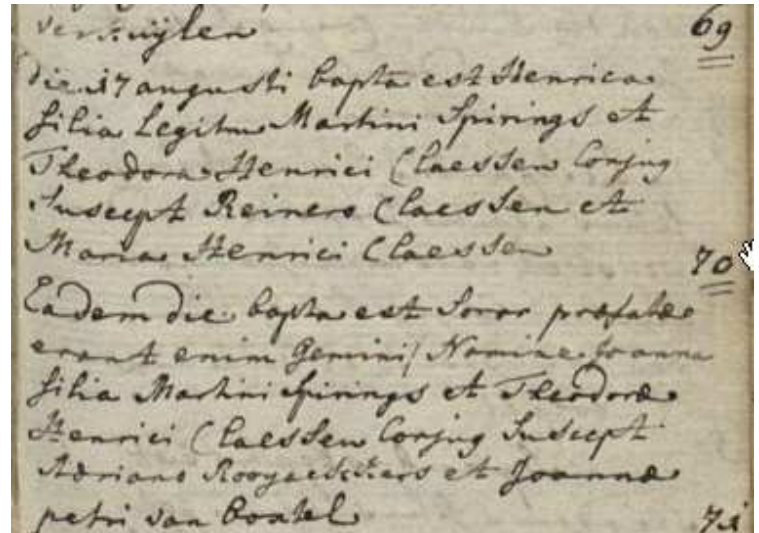 verkuÿlen 69
die 17 augusti bapta est Henrica
filia Legitma Martini Spirings et
Theodora Henrici Claessen Conjug
Suscept Reinero Claessen et
Maria Henrici Claessen 70
Eadem die bapta est Soror præfatæ
erant enim Gemini/ Nomine Joanna
filia Martini Spirings et Theodoræ
Henrici Claessen Conjug Suscept
Adriano et Joanna
petri van boxtel 71